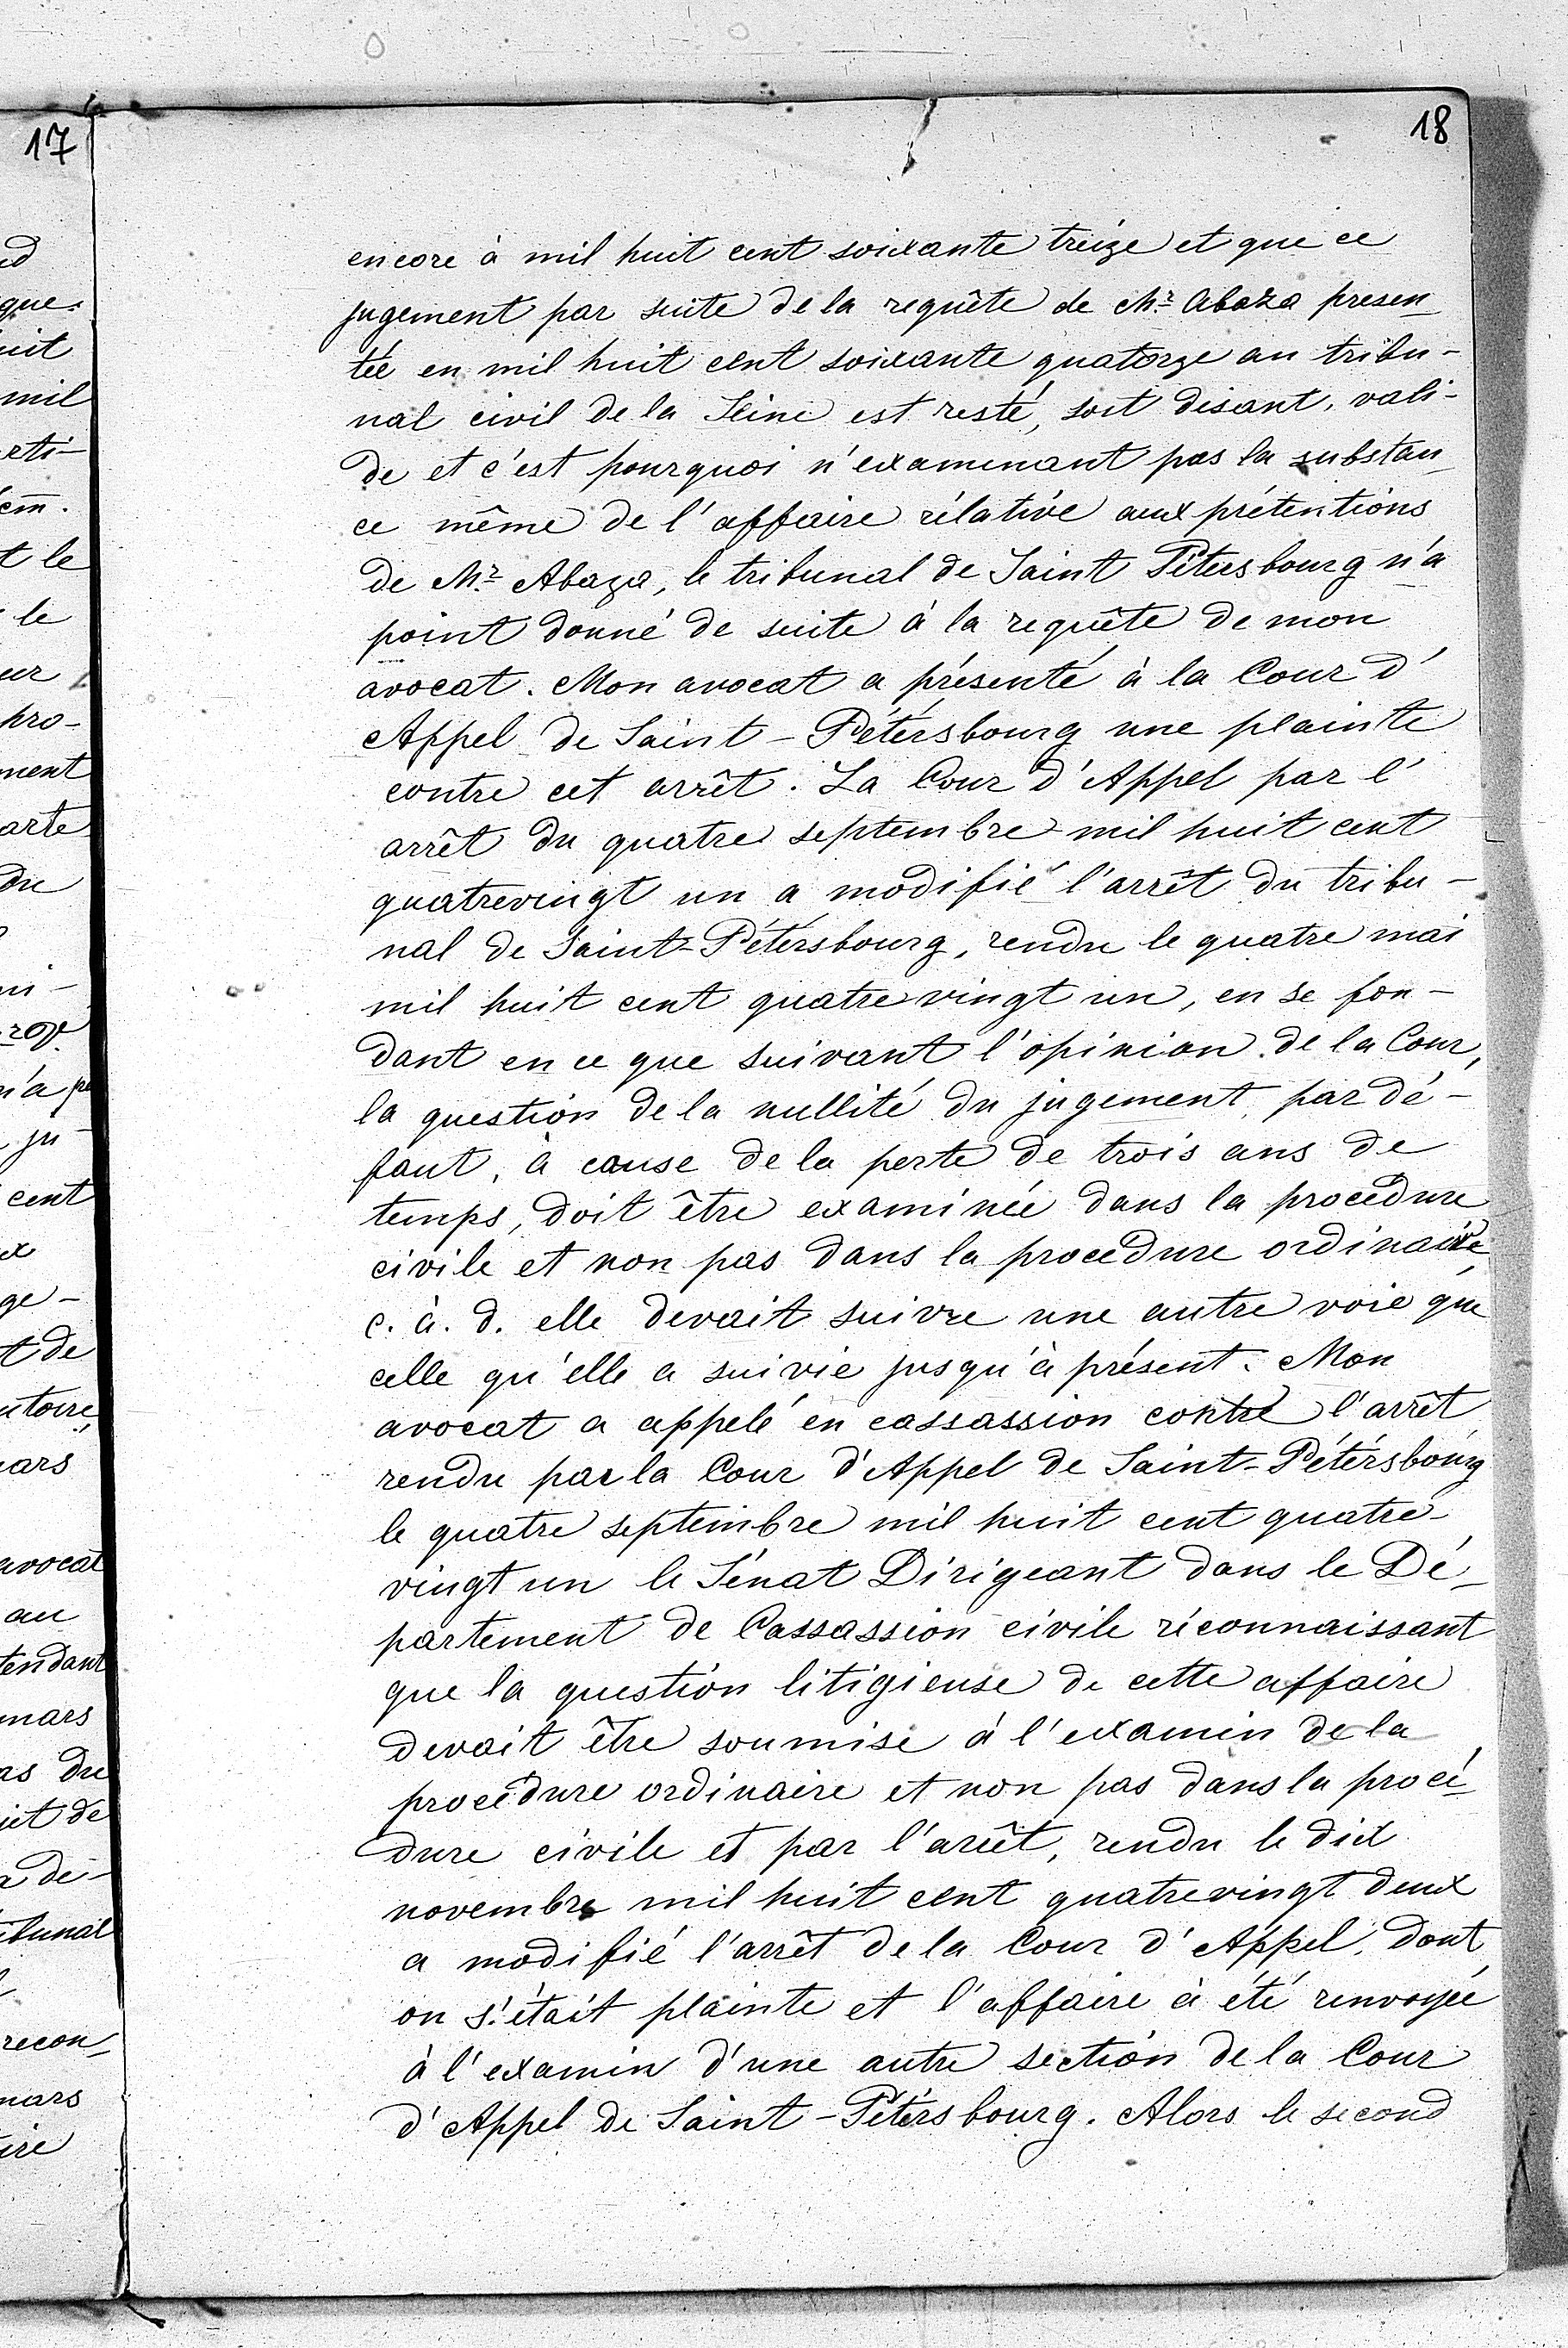 17
18
encore à mil huit cent soixante treize et que ce
jugement par suite de la requête de Mr. Abaza presen-
tée en mil huit cent soixante quatorze au tribu-
nal civil de la Seine est resté, soit disant, vali-
de et c'est pourquoi n'examinant pas la substan-
ce même de l'affaire rélative aux prétentions
de Mr. Abaza, le tribunal de Saint Pétersbourg n'a
point donné de suite à la requête de mon
avocat. Mon avocat a présenté à la Cour d'
Appel de Saint-Pétérsbourg une plainte
contre cet arrêt. La Cour d'Appel par l'
arrêt du quatre septembre mil huit cent
quatrevingt un a modifié l'arrêt du tribu-
nal de Saint-Pétérsbourg, rendu le quatre mai
mil huit cent quatrevingt un, en se fon-
dant en ce que suivant l'opinion de la Cour,
la question de la nullité du jugement, par dé-
faut, à cause de la perte de trois ans de
temps, doit être examinée dans la procédure
civile et non pas dans la procédure ordinaire,
c. à. d. elle devait suivre une autre voie que
celle qu'elle a suivie jusqu'à présent. Mon
avocat a appelé en cassassion contre l'arrêt
rendu par la Cour d'Appel de Saint-Pétérsbourg
le quatre septembre mil huit cent quatre-
vingt un le Sénat Dirigeant dans le Dé-
partement de Cassassion civile réconnaissant
que la question litigieuse de cette affaire
devait être soumise à l'examin de la
procédure ordinaire et non pas dans la procé-
dure civile et par l'arrêt, rendu le dix
novembre mil huit cent quatrevingt deux
a modifié l'arrêt de la Cour d'Appel, dont
on s'était plainte et l'affaire à été renvoyée
à l'examin d'une autre section de la Cour
d'Appel de Saint-Pétérsbourg. Alors le second